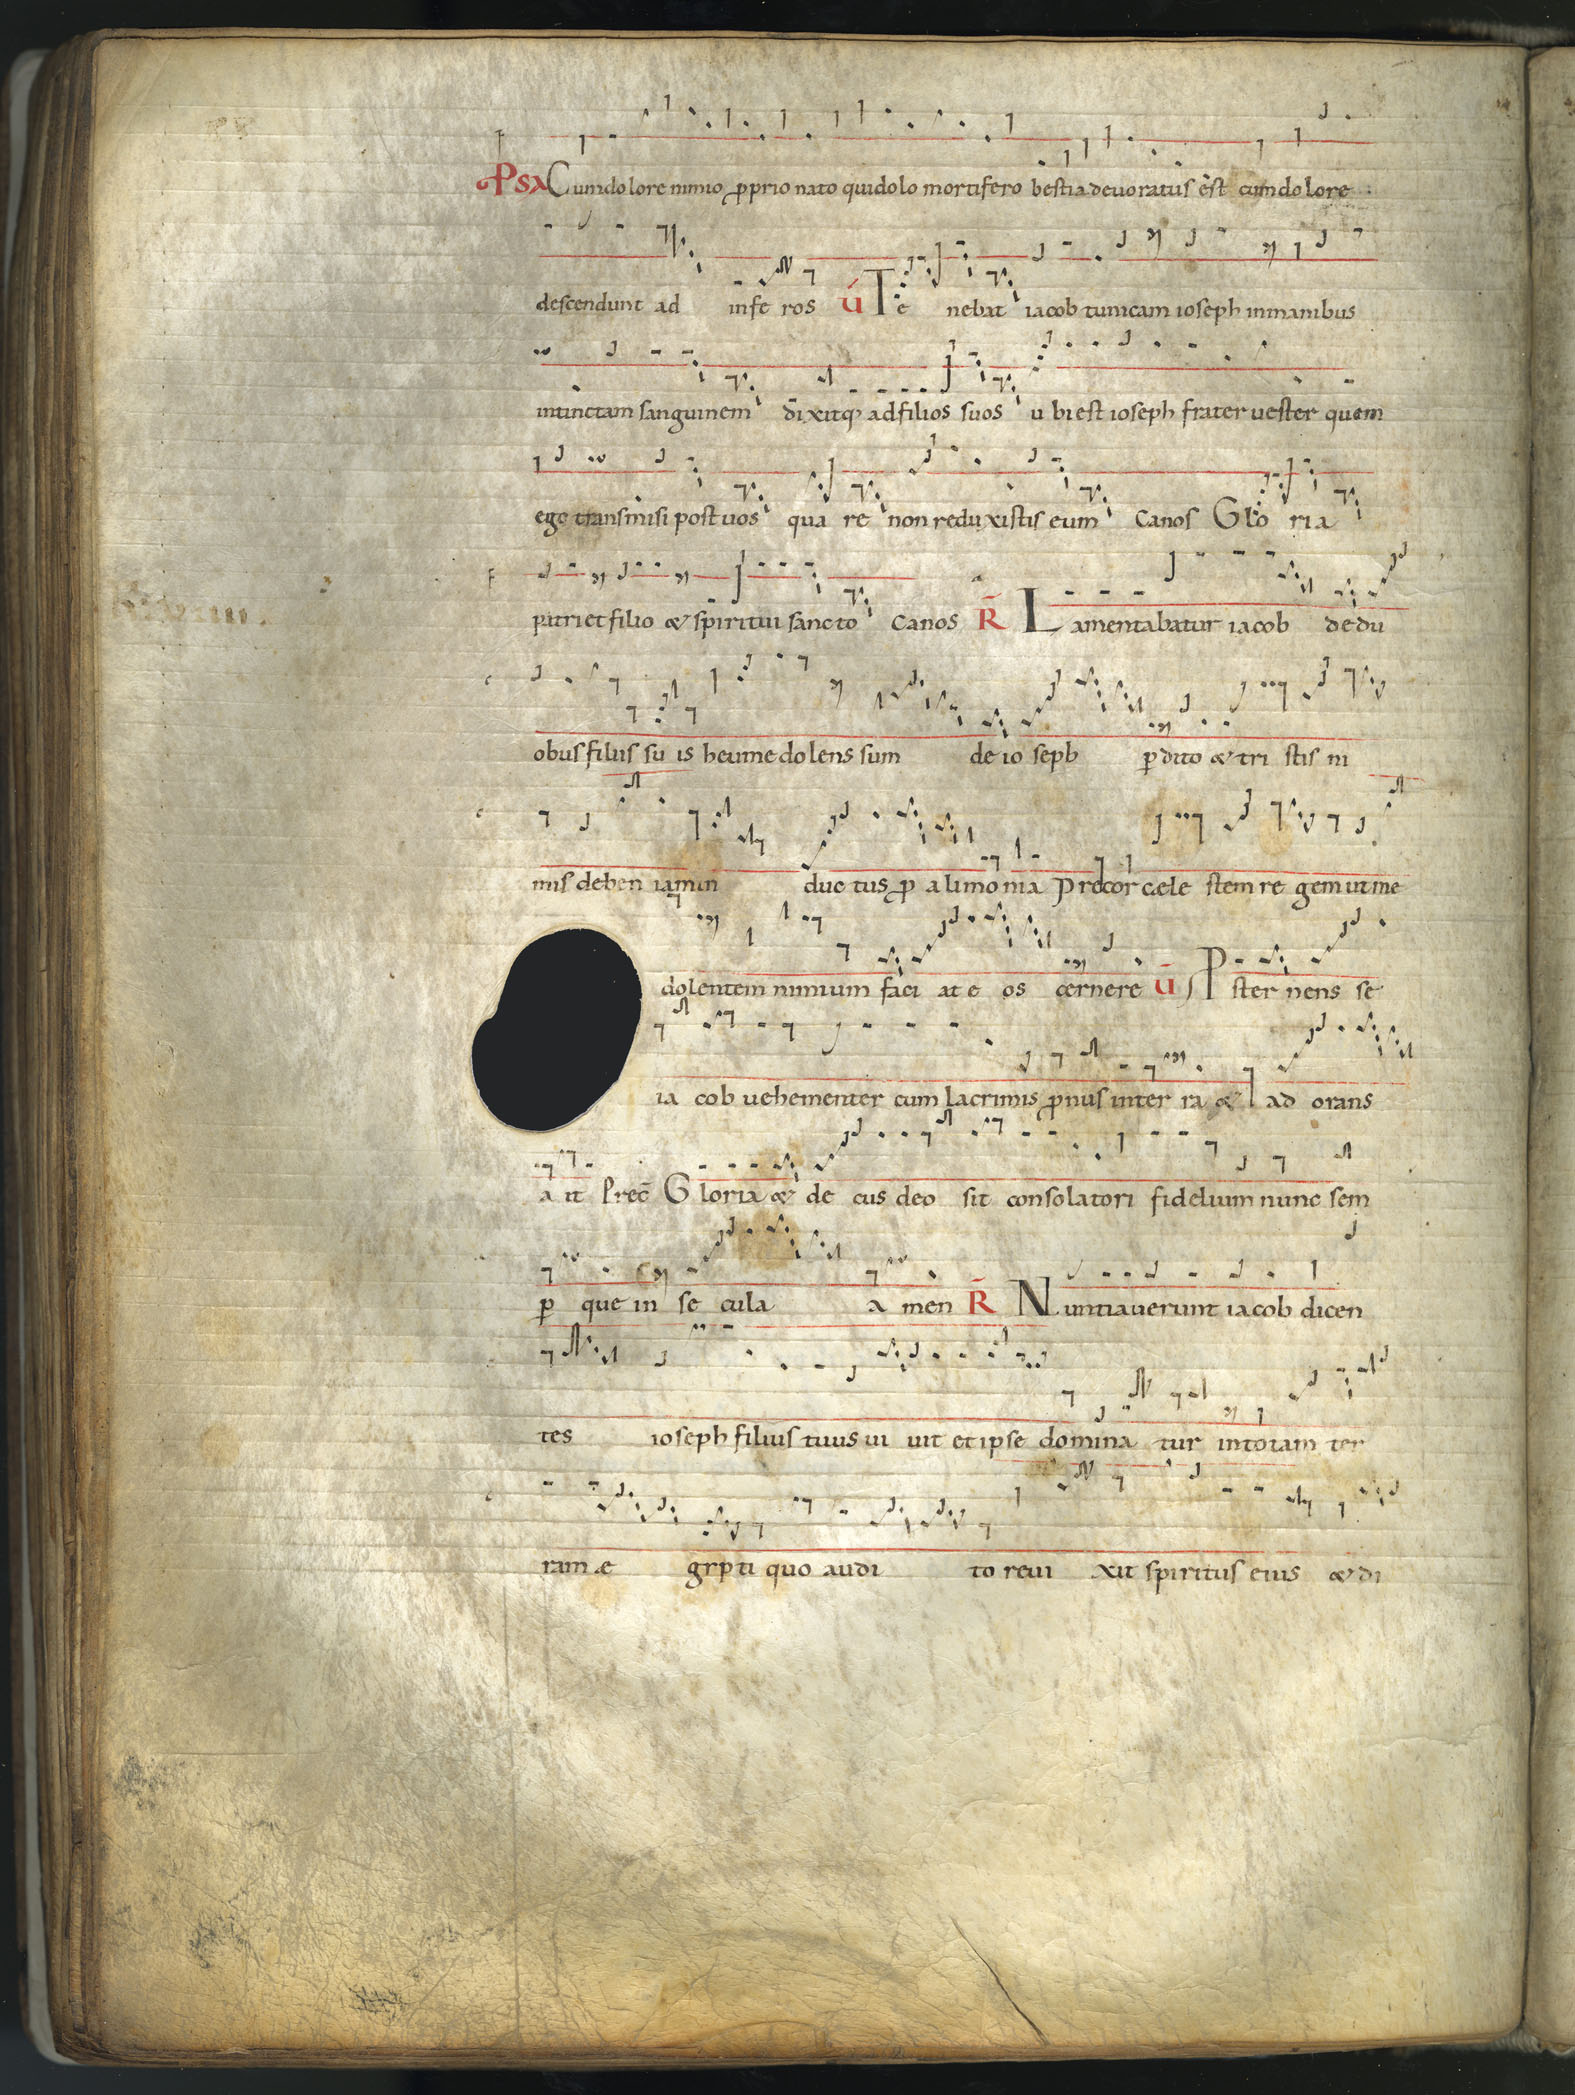 PSA Cum dolore nimio ꝓprio nato qui dolo mortifero bestia devoratus est cum dolore
descendunt ad infe ros V̄ Te nebat iacob tunicam ioseph in manibus
intinctam sanguinem dixitq; ad filios suos u bi est ioseph frater uester quem
ego transmisi post uos qua re non redu xistis eum Canos Glo ria
patri et filio & spiritui sancto Canos R̄ Lamentabatur iacob de du
obus filiis su is heu me dolens sum de io seph ꝑdito & tri stis ni
mis de ben iamin duc tus ꝓ alimo nia Precor cæle stem re gem ut me
dolentem nimium faci at e os cernere V̄ Pster nens se
ia cob uehementer cum lacrimis ꝓnus in ter ra & ad orans
a it Prec̄ Gloria & de cus deo sit consolatori fidelium nunc sem
ꝑ que in se cula a men R̄ Nuntiaverunt iacob dicen
tes ioseph filius tuus ui uit et ipse domina tur in totam ter
ram æ gypti quo audi to revi xit spiritus eius & di